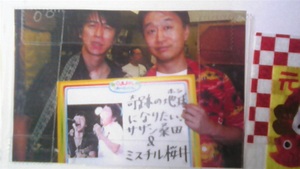 奇跡の地球
になりたい。
サザン桑田
&
ミスチル桜井